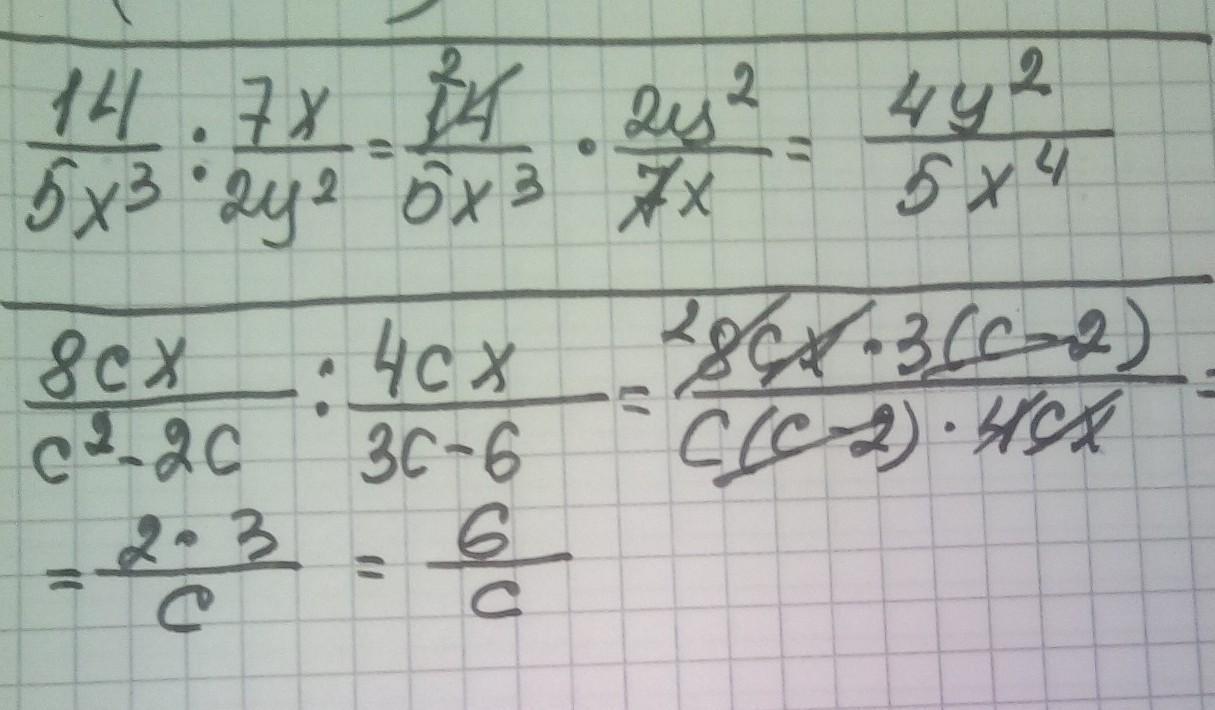 14/5x³ : 7x/2y² = 14/5x³ · 2y²/7x = 4y²/5x⁴
8cx/c²-2c : 4cx/3c-6 = 8cx·3(c-2)/c(c-2)·4cx =
= 2·3/c = 6/c